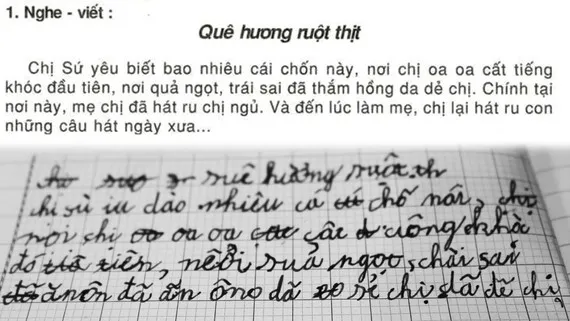 1. Nghe - viết :
Quê hương ruột thịt
Chị Sứ yêu biết bao nhiêu cái chốn này, nơi chị oa oa cất tiếng
khóc đầu tiên, nơi quả ngọt, trái sai đã thắm hồng da dẻ chị. Chính tại
nơi này, mẹ chị đã hát ru chị ngủ. Và đến lúc làm mẹ, chị lại hát ru con
những câu hát ngày xưa...
hường ruôt th
chị sù iu dào nhiêu cá chố nái, chị
nơi chị oa oa câc cuông khài
đó tiên, ngọt, chãi sai
đã ăn ông dã sẻ chị dã đẽ chị